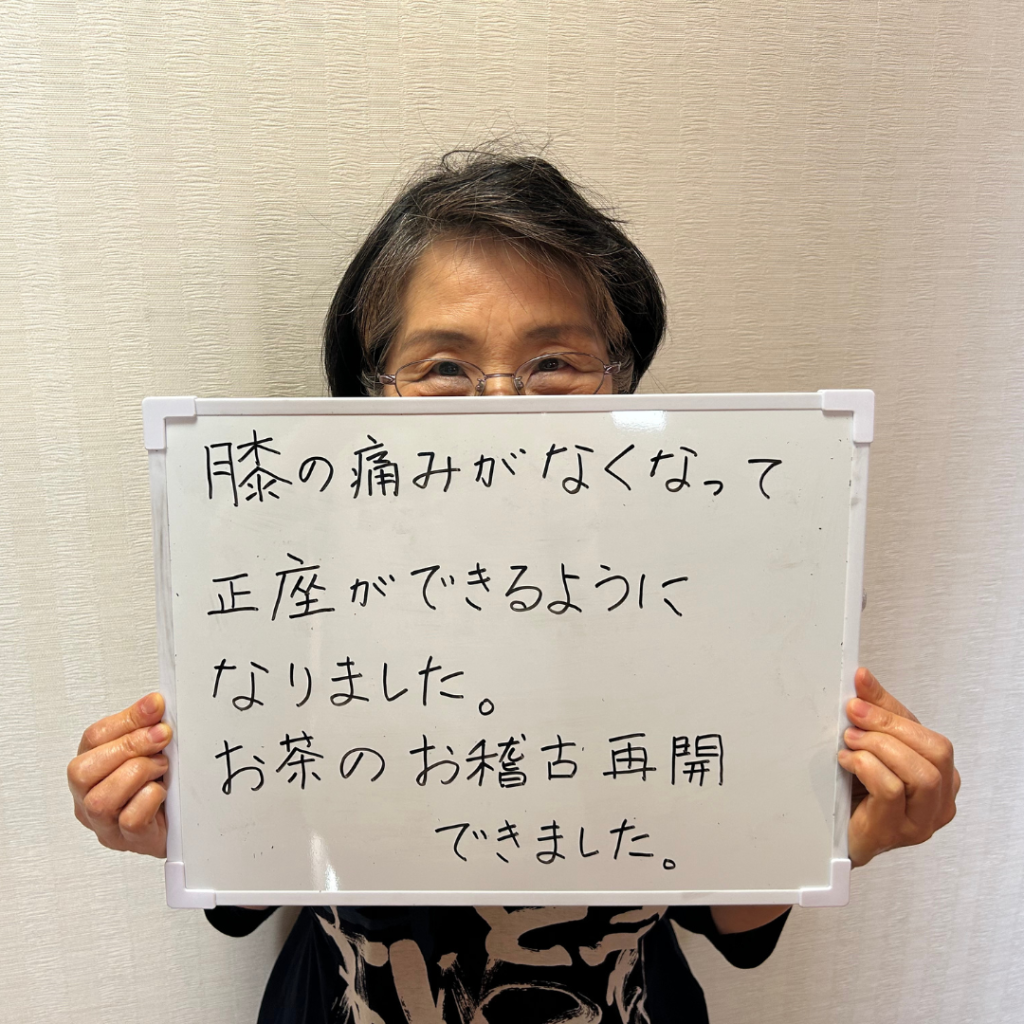 膝の痛みがなくなって
正座ができるように
なりました。
お茶のお稽古再開
できました。